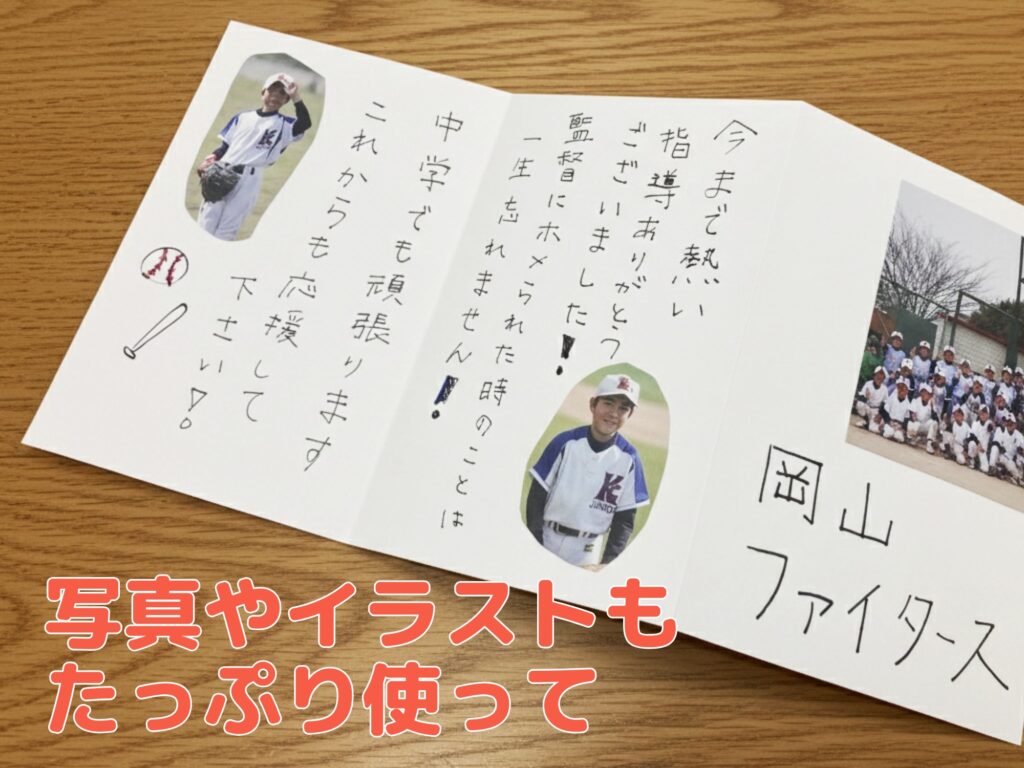 今まで熱い
指導ありがとう
ございました!
監督にホメられた時のことは
一生忘れません!
中学でも頑張ります
これからも応援して
下さい!
岡山
ファイタース
K
K
JUNIOR
写真やイラストも
たっぷり使って